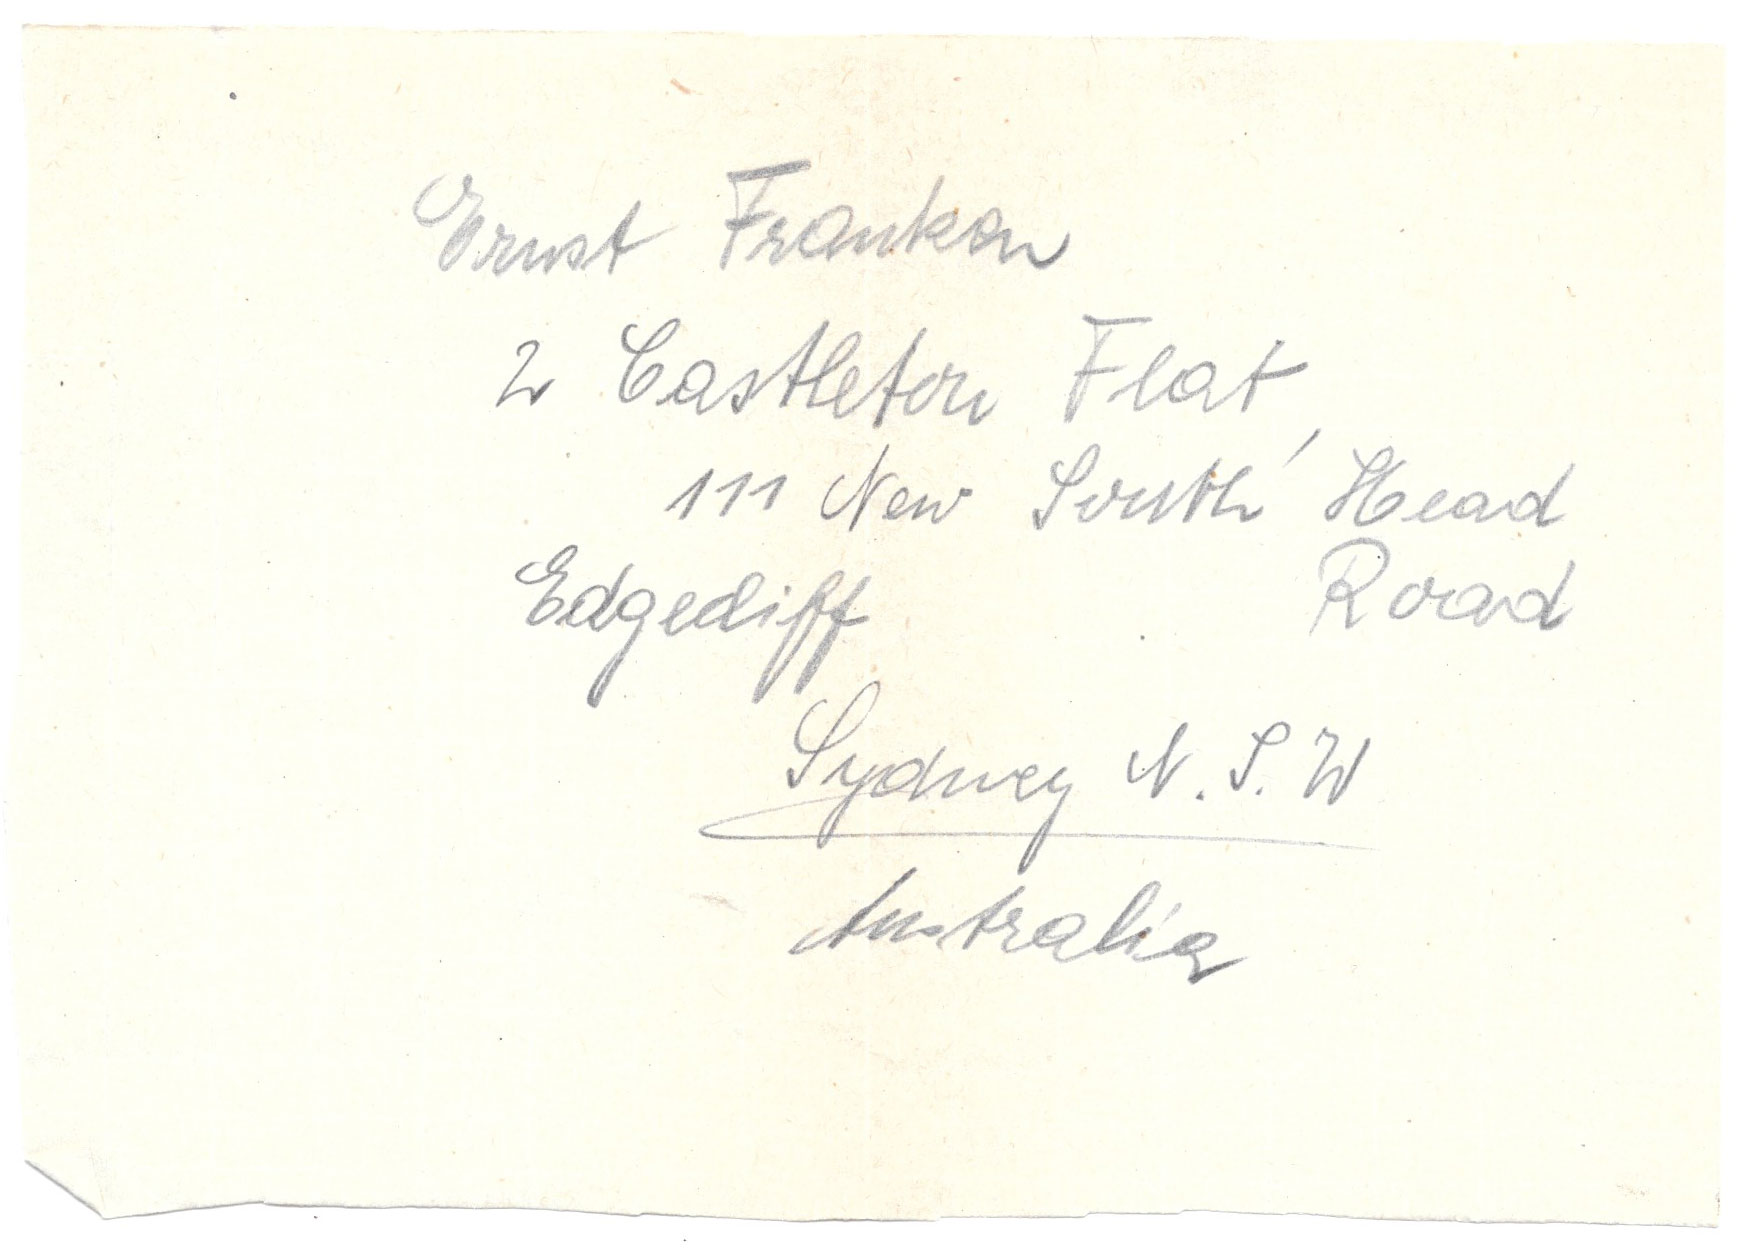 Ernst Franken
2 Castleton Flat,
111 New South Head
Road
Edgediff
Sydney N.S.W
Australia